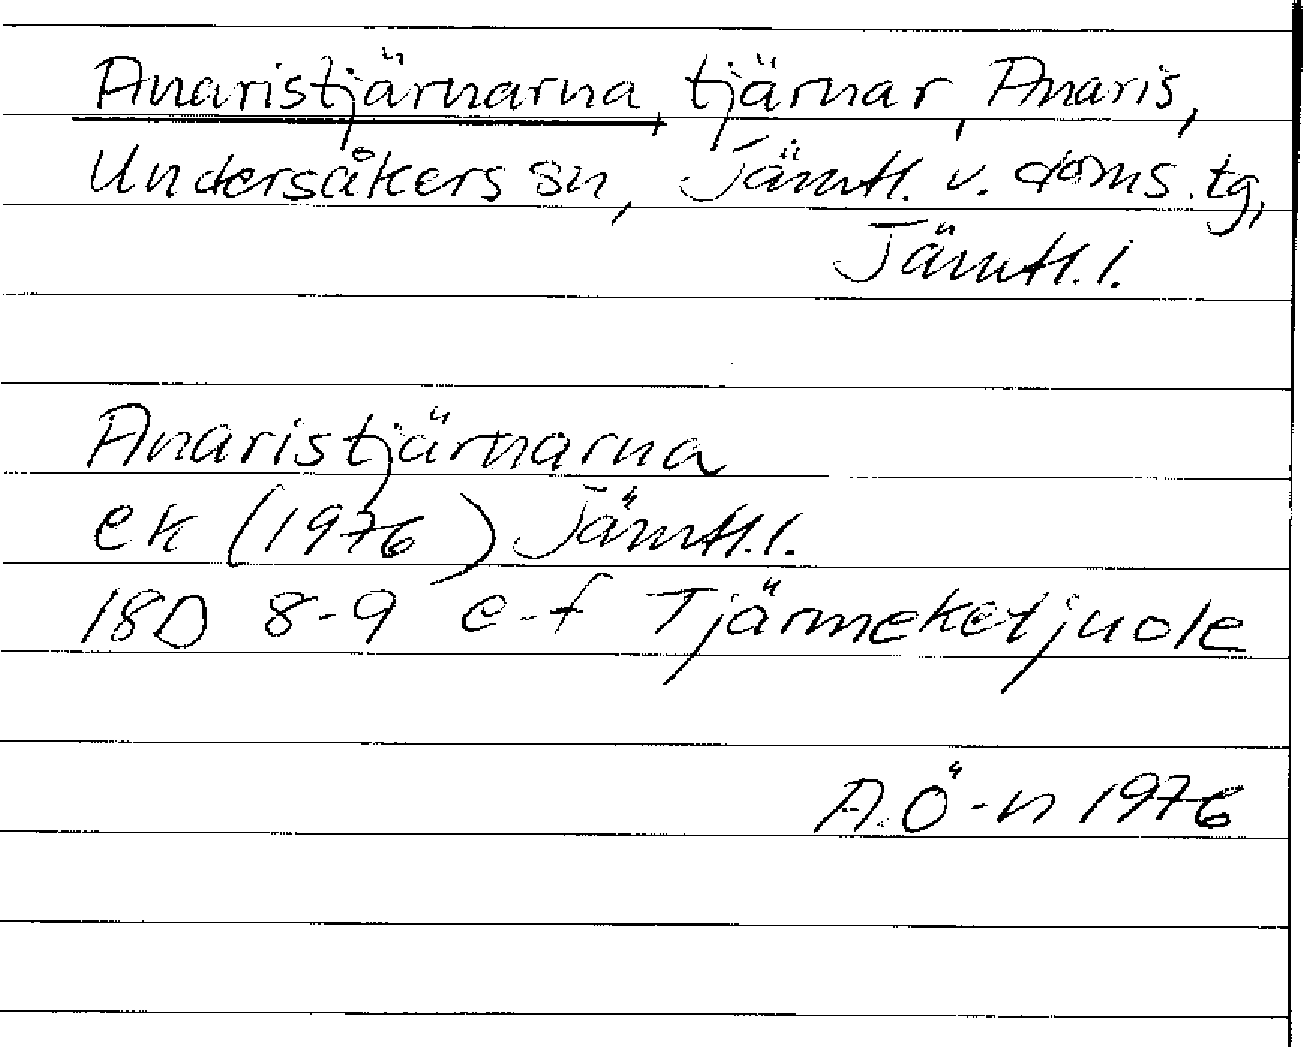 Anaristjärnarna, tjärnar, Anaris,
Undersåkers sn, Jämtl. v. doms. tg,
Jämtl. l.
Anaristjärnarna
ek (1976) Jämtl. l.
18D 8-9 e-f Tjärmeketjuole
A.Ö-n 1976